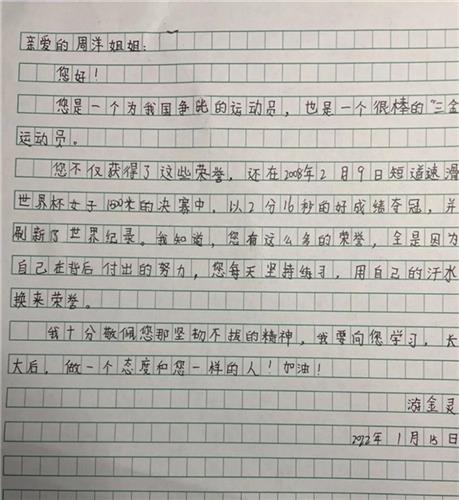 亲爱的周洋姐姐：
您好！
您是一个为我国争光的运动员，也是一个很棒的“三金
运动员。
您不仅获得了这些荣誉，还在2008年2月9日短道速滑
世界杯女子1500米的决赛中，以2分16秒的好成绩夺冠，并
刷新了世界纪录。我知道，您有这么多的荣誉，全是因为
自己在背后付出的努力，您每天坚持练习，用自己的汗水
换来荣誉。
我十分敬佩您那坚韧不拔的精神，我要向您学习，长
大后，做一个态度和您一样的人！加油！
游金灵
2022年1月15日